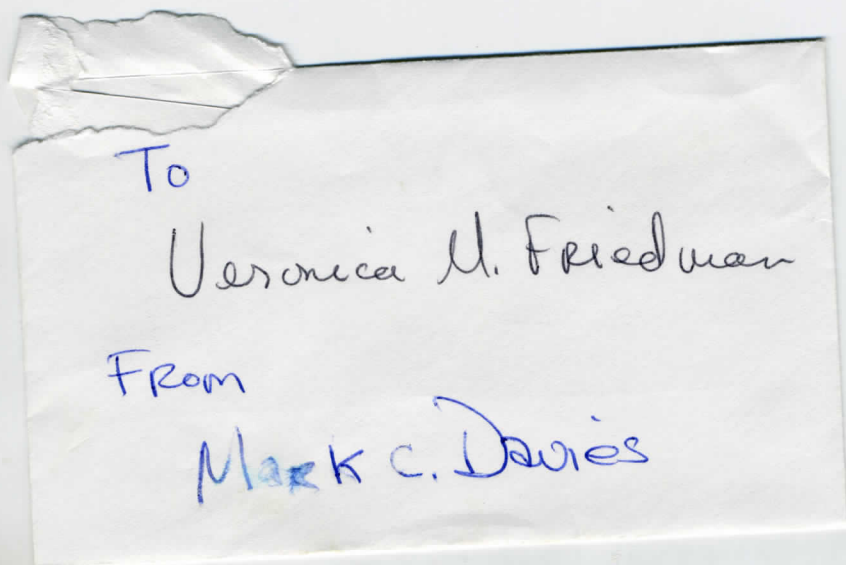 To
Veronica M. Friedman
From
Mark C. Davies